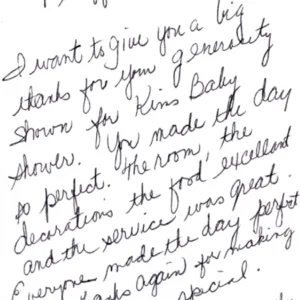 I want to give you a big
thanks for your generosity
shown for Kims Baby
shower. You made the day
so perfect. The room, the
decorations the food, excellent
and the service was great.
Everyone made the day perfect
again for making
special.